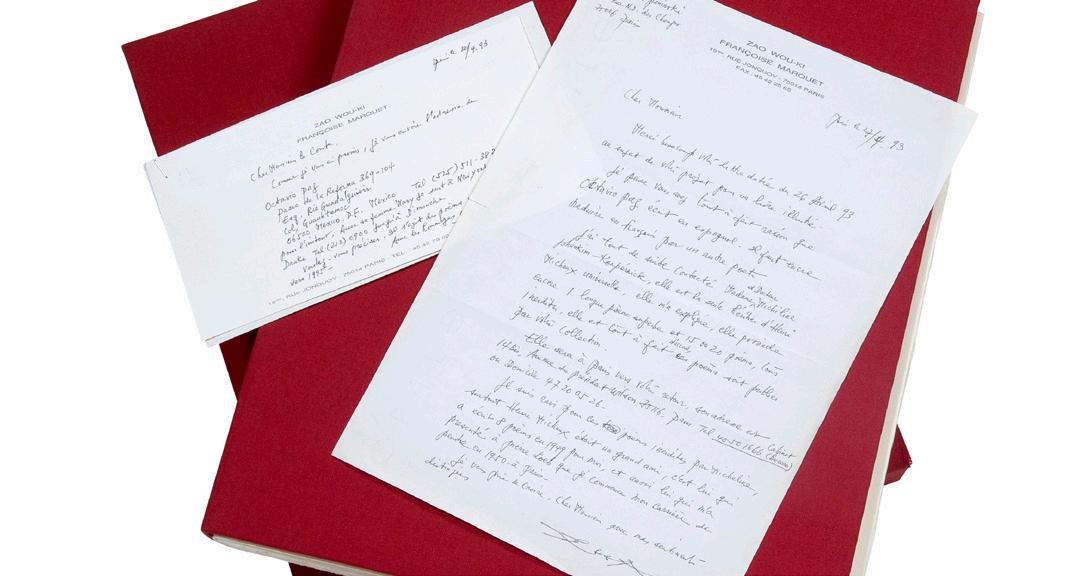 Paris le 4.93
ZAO WOU-KI
FRANÇOISE MARQUET
Cher Monsieur le Comte,
Comme je vous ai promis, je vous envoie l'adresse de
Octavio Paz
Paseo de la Reforma 369-104
Esq. Rio Guadalquivir
Col. Cuauhtemoc
06500 Mexico, D.F. Mexico Tel (525) 511-38
pour l'instant, avec sa femme Mary José sont à New York
Drake Tel (212) 0900 jusqu'à Dimanche.
Voulez-vous préciser, il s'agit des poèmes
vers 1945
19bis, RUE JONQUOY - 75014 PARIS - TEL
75016 Paris
ZAO WOU-KI
FRANÇOISE MARQUET
19bis, RUE JONQUOY - 75014 PARIS
FAX : 45 42 25 65
Paris le 4. 93
Cher Monsieur
Merci beaucoup votre lettre datée du 26 Avril 93
au sujet de votre projet pour un livre illustré.
Je pense vous avez tout à fait raison que
Octavio Paz écrit en espagnol, il faut encore
traduire en français par un autre poète
J'ai tout de suite contacté Madame Micheline
elle est la seule héritière d'Henri
Michaux universelle, elle m'a expliqué, elle possède
encore 1 longue poème superbe et 15 ou 20 poèmes, tous
inédits, elle est tout à fait poèmes soit publier
par votre collection.
Elle sera à Paris vers votre retour, son adresse est
14 bis, Avenue du président Wilson 75116, Paris Tel 40501666 Cabinet
ou Domicile 47 20 05 26 -
Je suis ravi pour ces poèmes inédites par Micheline,
surtout Henri Michaux était un grand ami, c'est lui qui
a écrit 8 poèmes en 1949 pour moi, et aussi lui qui m'a
présenté à Pierre Loeb que je commence mon carrière de
peintre en 1950 à Paris.
Je vous prie de croire, Cher Monsieur avec mes sentiments
distingués